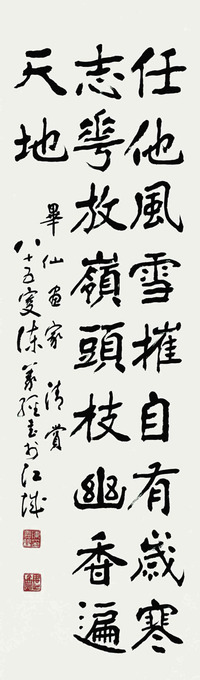 任他風雪摧自有歲寒
志花放嶺頭枝幽香遍
天地
畢仙画家清賞
八十五叟陈義經書於江城